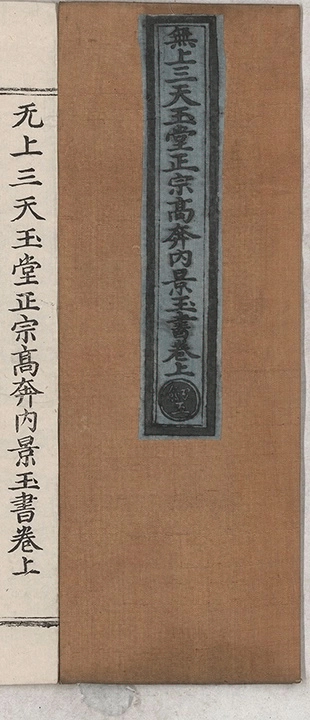 無上三天玉堂正宗高奔內景玉書卷上
无上三天玉堂正宗髙奔内景玉書卷上